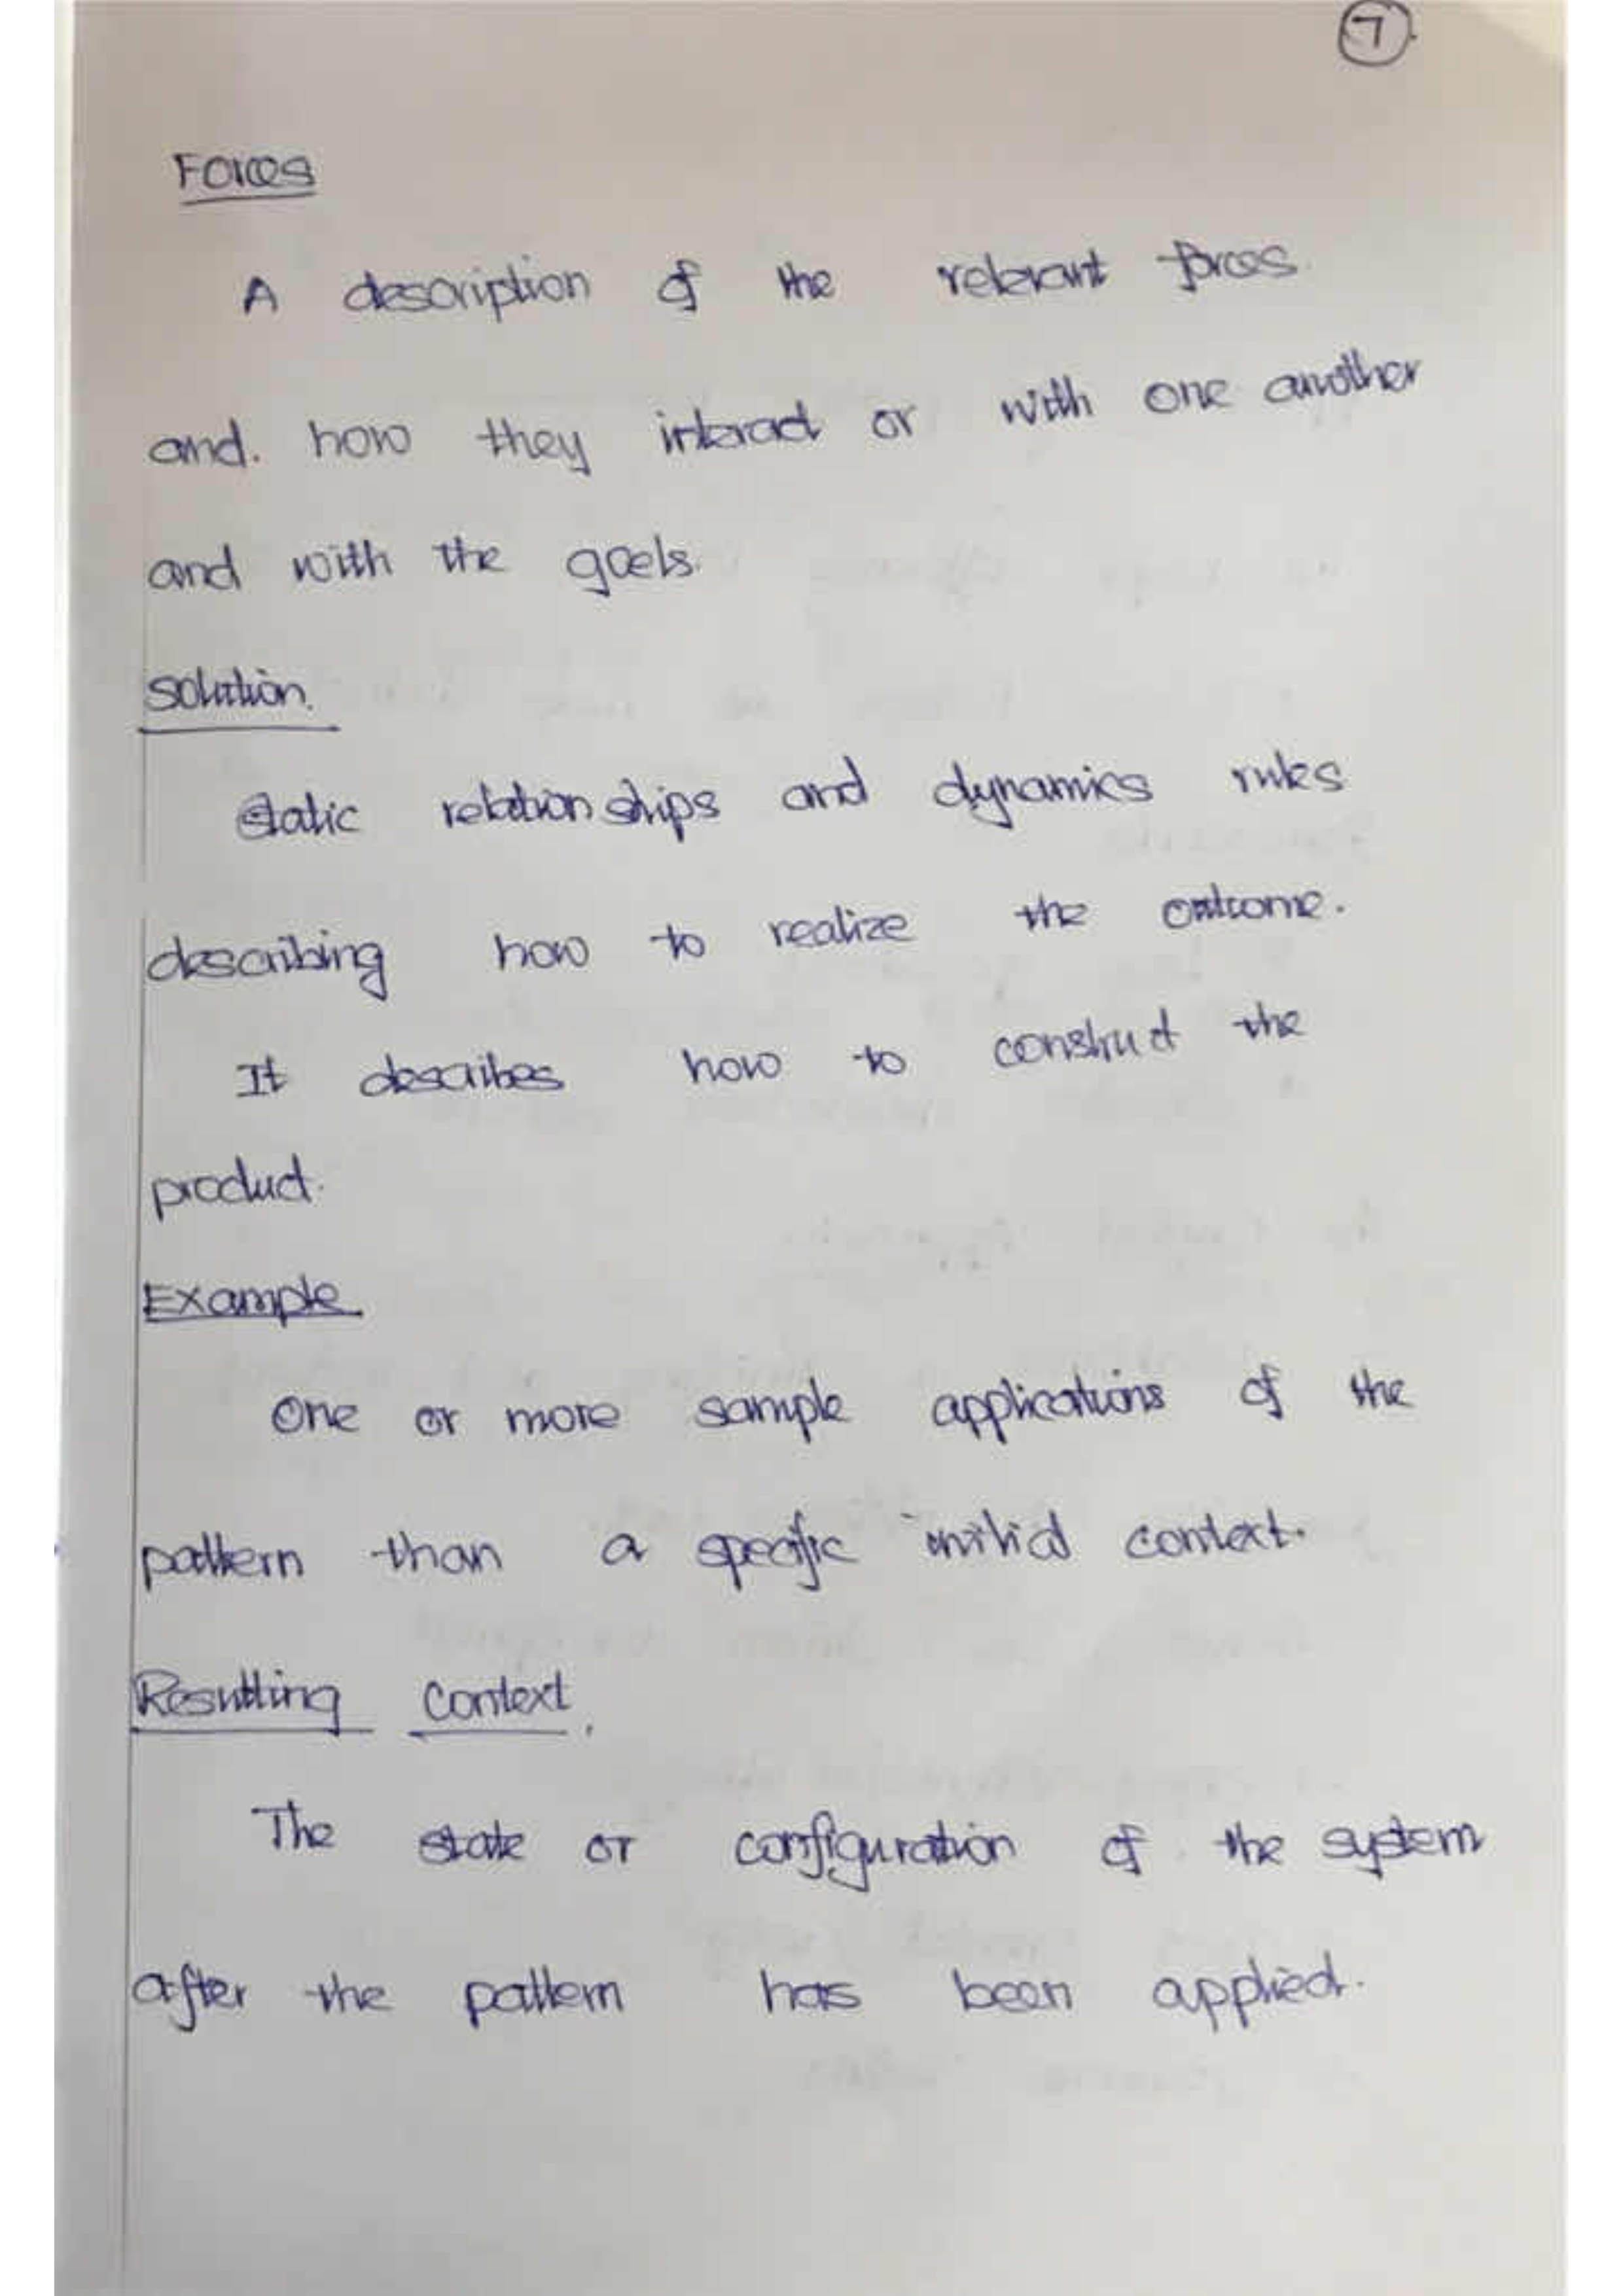 7
Forces
A description of the relevant forces.
and. how they interact or with one another
and with the goels.
solution.
static relationships and dynamics rules
describing how to realize the outcome.
It describes how to construct the
product.
Example
One or more sample applications of the
pattern than a specific initial context.
Resulting context.
The state or configuration of the system
after the pattern has been applied.